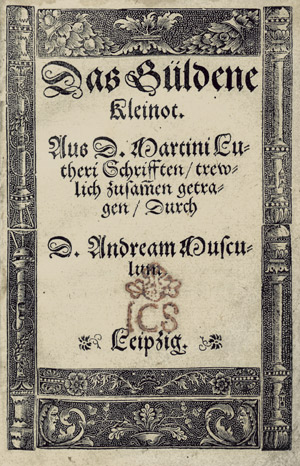 Das Güldene
Kleinot.
Aus D. Martini Lu-
theri Schrifften/ trew-
lich zusam̃en getra-
gen/ Durch
D. Andream Muscu-
lum
ICS
Leipzig.